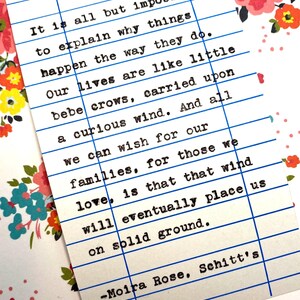 It is all but impos
to explain why things
happen the way they do.
Our lives are like little
bebe crows, carried upon
a curious wind. And all
we can wish for our
families, for those we
love, is that that wind
will eventually place us
on solid ground.
-Moira Rose, Schitt's